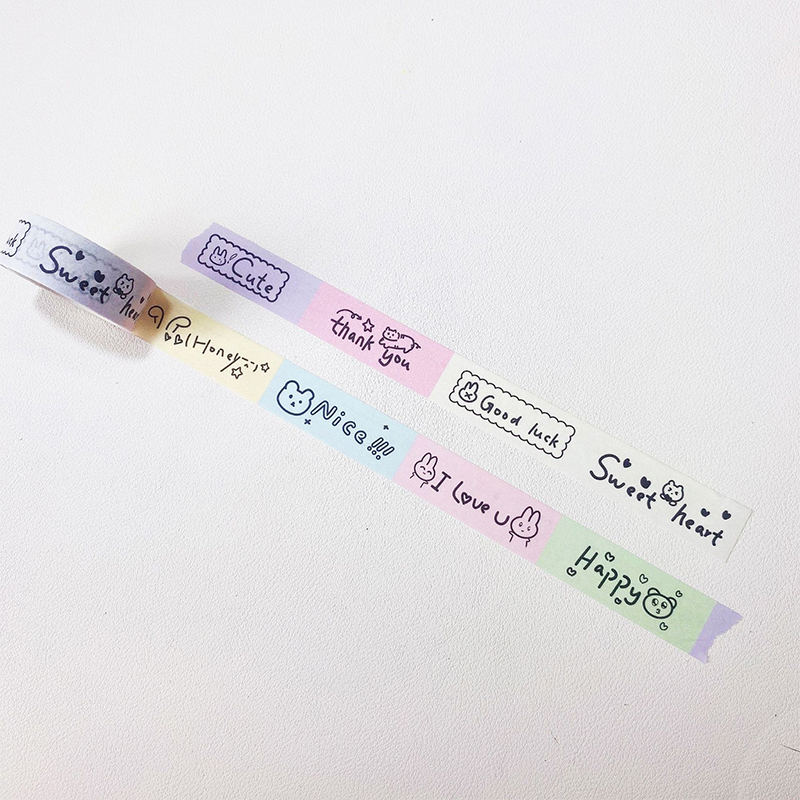 Sweet
Cute
thank you
Good luck
Sweet heart
Honey
Nice!!!
I Love U
Happy